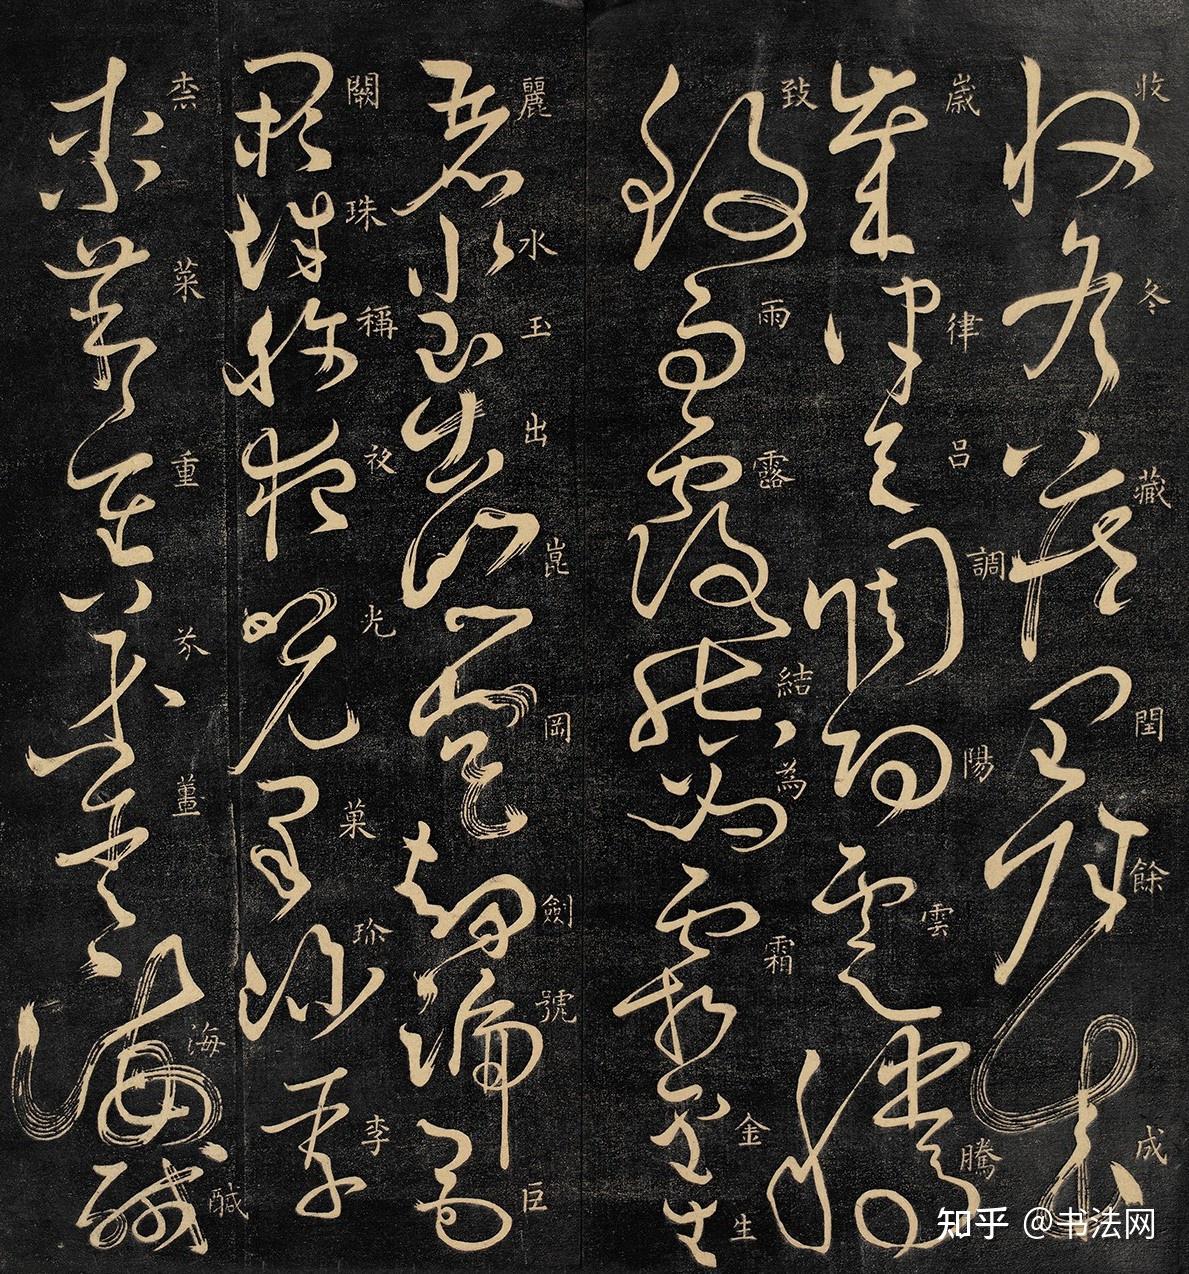 收冬藏閏餘成
歲律呂調陽雲騰
致雨露結為霜金生
麗水玉出崑岡劍號巨
闕珠稱夜光菓珍李
柰菜重芥薑海醎
知乎 @书法网